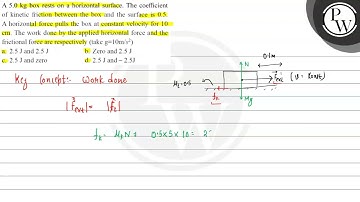 A 5.0 kg box rests on a horizontal surface. The coefficient
of kinetic friction between the box and the surface is 0.5.
A horizontal force pulls the box at constant velocity for 10
cm. The work done by the applied horizontal force and the
frictional force are respectively (take g=10m/s²)
a. 2.5 J and 2.5 J b. Zero and 2.5 J
c. 2.5 J and zero d. 2.5 J and – 2.5J
PW
Key Concept:- Work done
|F_ext| = |f_k|
f_k = μ_k N = 0.5×5×10 = 2
N
0.1m
F_ext (v = const)
μ_k = 0.5
f_k
Mg